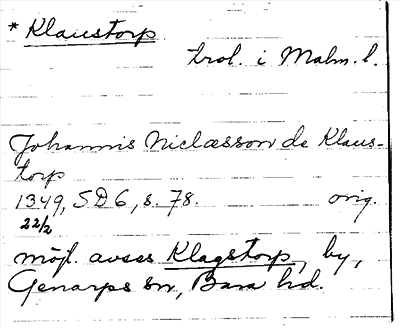 * Klaustorp
trol. i Malm. l.
Johannis Niclæsson de Klaus-
torp
1349, SD 6, s. 78. orig.
22/2
möjl. avses Klagstorp, by,
Genarps sn, Bara hd.